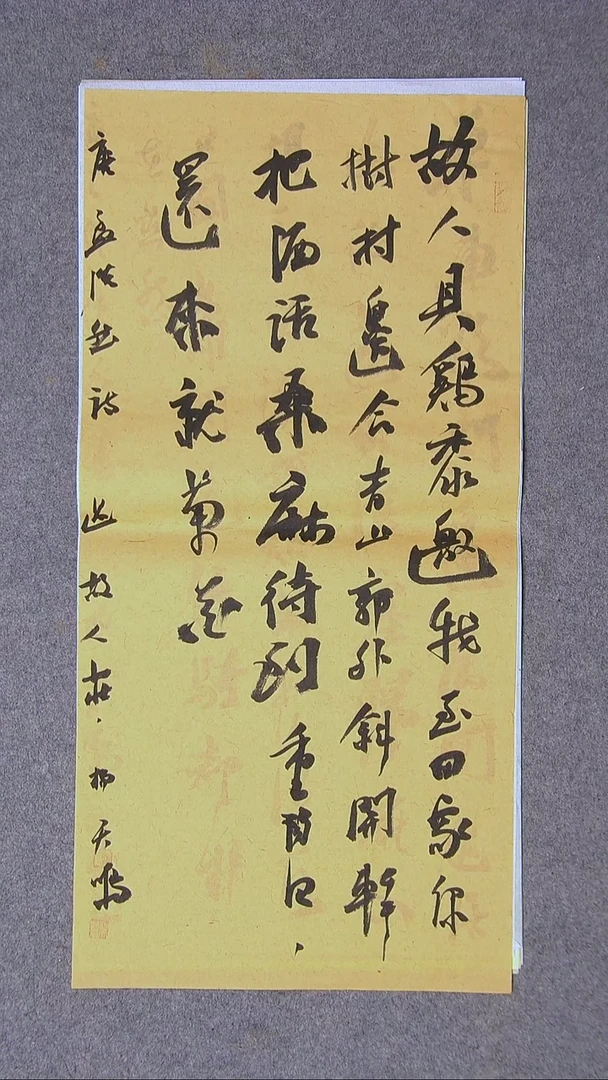 故人具鷄黍邀我至田家绿
樹村邊合青山郭外斜開軒
把酒話桑麻待到重陽日、
還來就菊花
唐孟浩然詩 过故人莊、楊天鳴